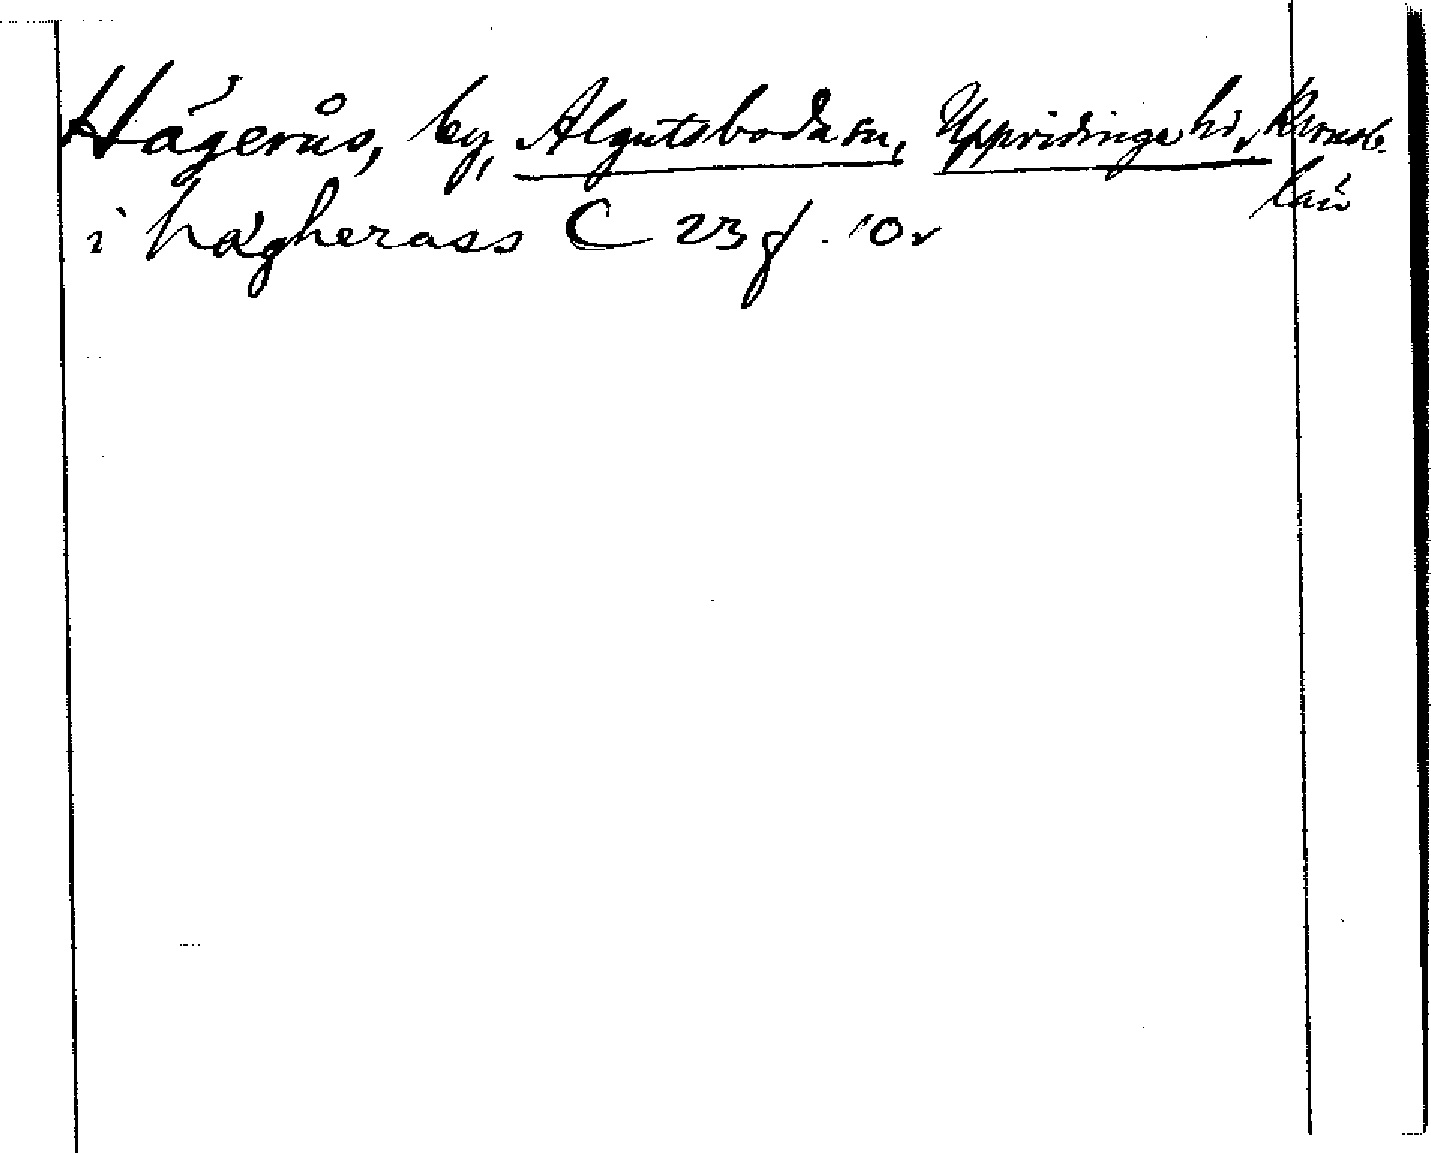 Hägerås, by, Algutsboda sn, Uppvidinge hd, Kronob. län
i hägherass C 23 f. 10v